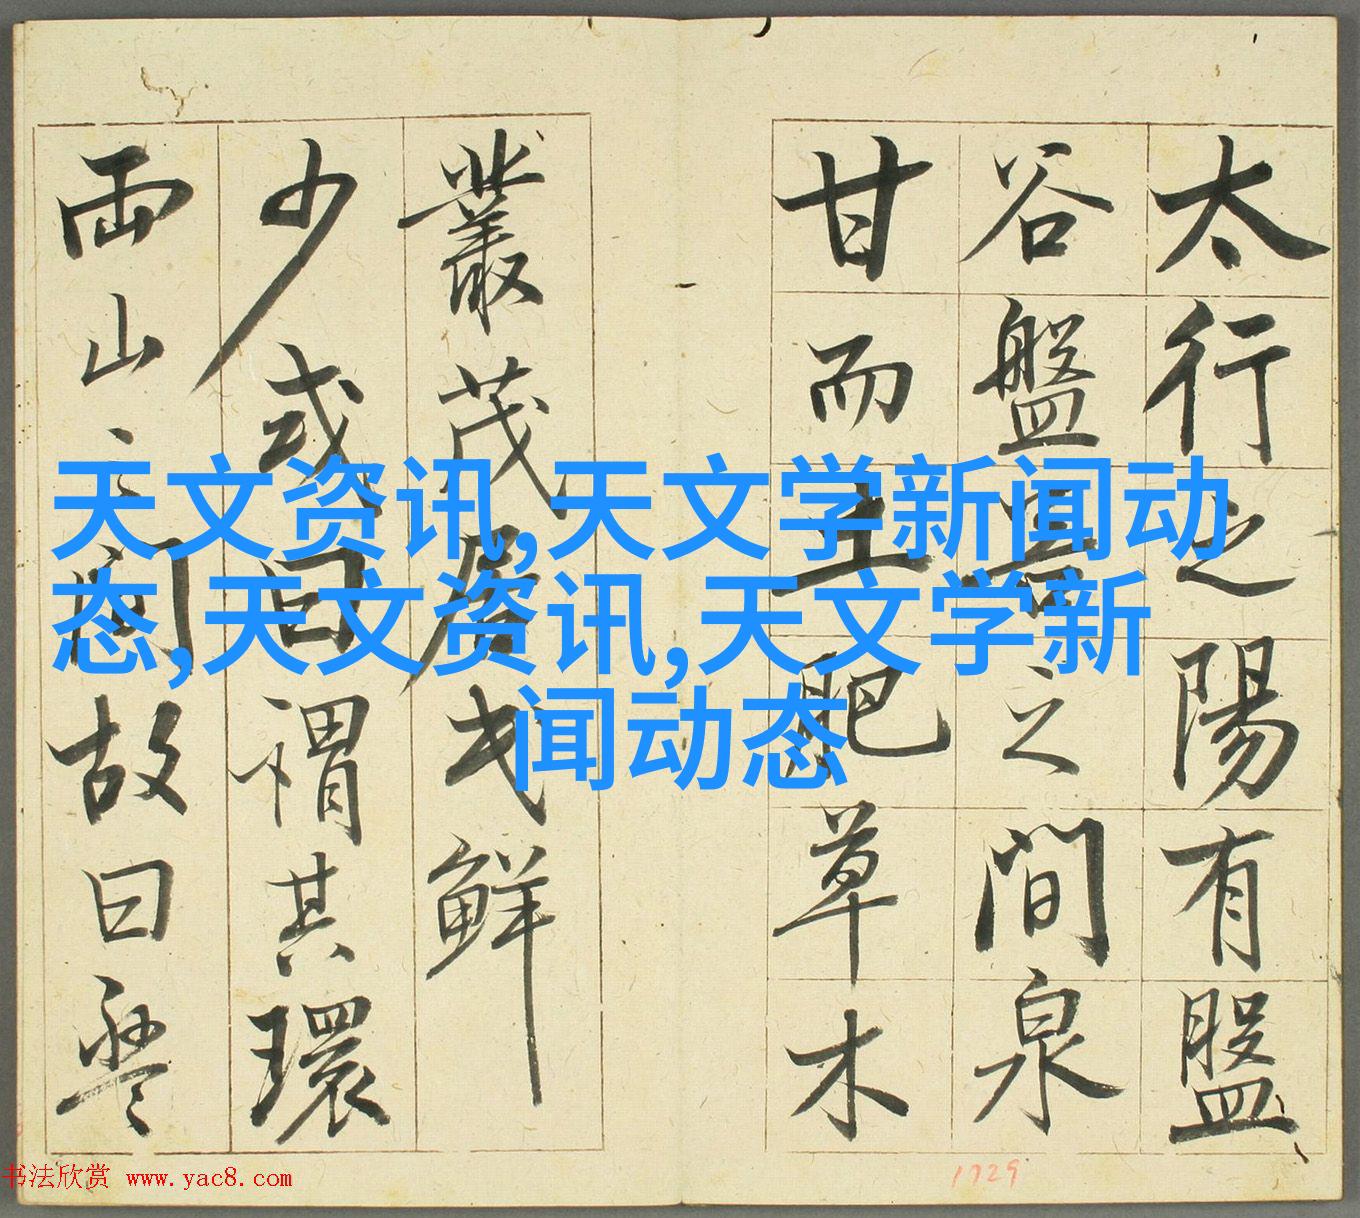 太行之陽有盤
谷盤谷之間泉
甘而土肥草木
叢茂居民鮮
少或曰謂其環
兩山之間故曰盤
天文资讯,天文学新闻动
态,天文资讯,天文学新
闻动态
书法欣赏 www.yac8.com
1729